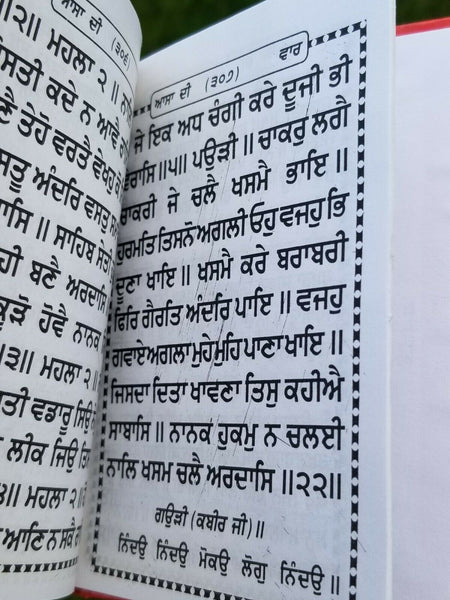 ਆਸਾ ਦੀ (੩੦੬)
॥੨॥ ਮਹਲਾ ੨ ॥
ਸਤੀ ਕਦੇ ਨ ਆਵੈ
ਣੈ ਤੇਹੋ ਵਰਤੈ ਵੇਖਹੁ ਕੋ
ਸਤੂ ਅੰਦਰਿ ਵਸਤੁ
ਸਿ ॥ ਸਾਹਿਬ ਸੇਤੀ
ਹੀ ਬਣੈ ਅਰਦਾਸਿ
ਕੂੜੋ ਹੋਵੈ ਨਾਨਕ
॥੩॥ ਮਹਲਾ ੨
ਤੀ ਵਡਾਰੂ ਸਿਉ
ਲੀਕ ਜਿਉ
੪॥ ਮਹਲਾ ੨॥
ਆਣਿ ਨ ਸਕੈ
ਆਸਾ ਦੀ (੩੦੭) ਵਾਰ
ਜੇ ਇਕ ਅਧ ਚੰਗੀ ਕਰੇ ਦੂਜੀ ਭੀ
ਵੇਰਾਸਿ॥੫॥ ਪਉੜੀ ॥ ਚਾਕਰੁ ਲਗੈ
ਚਾਕਰੀ ਜੇ ਚਲੈ ਖਸਮੈ ਭਾਇ ॥
ਹੁਰਮਤਿ ਤਿਸਨੋ ਅਗਲੀ ਓਹੁ ਵਜਹੁ ਭਿ
ਦੂਣਾ ਖਾਇ ॥ ਖਸਮੈ ਕਰੇ ਬਰਾਬਰੀ
ਫਿਰਿ ਗੈਰਤਿ ਅੰਦਰਿ ਪਾਇ ॥ ਵਜਹੁ
ਗਵਾਏ ਅਗਲਾ ਮੁਹੇ ਮੁਹਿ ਪਾਣਾ ਖਾਇ ॥
ਜਿਸਦਾ ਦਿਤਾ ਖਾਵਣਾ ਤਿਸੁ ਕਹੀਐ
ਸਾਬਾਸਿ ॥ ਨਾਨਕ ਹੁਕਮੁ ਨ ਚਲਈ
ਨਾਲਿ ਖਸਮ ਚਲੈ ਅਰਦਾਸਿ ॥੨੨॥
ਗਉੜੀ (ਕਬੀਰ ਜੀ)॥
ਨਿੰਦਉ ਨਿੰਦਉ ਮੋਕਉ ਲੋਗੁ ਨਿੰਦਉ ॥